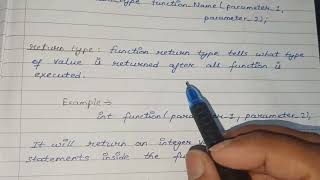 type function_Name(parameter_1,
parameter_2);
return type: function return type tells what type
of value is returned after all function is
executed.
Example →
int function(parameter_1, parameter_2),
It will return an integer
statements inside the